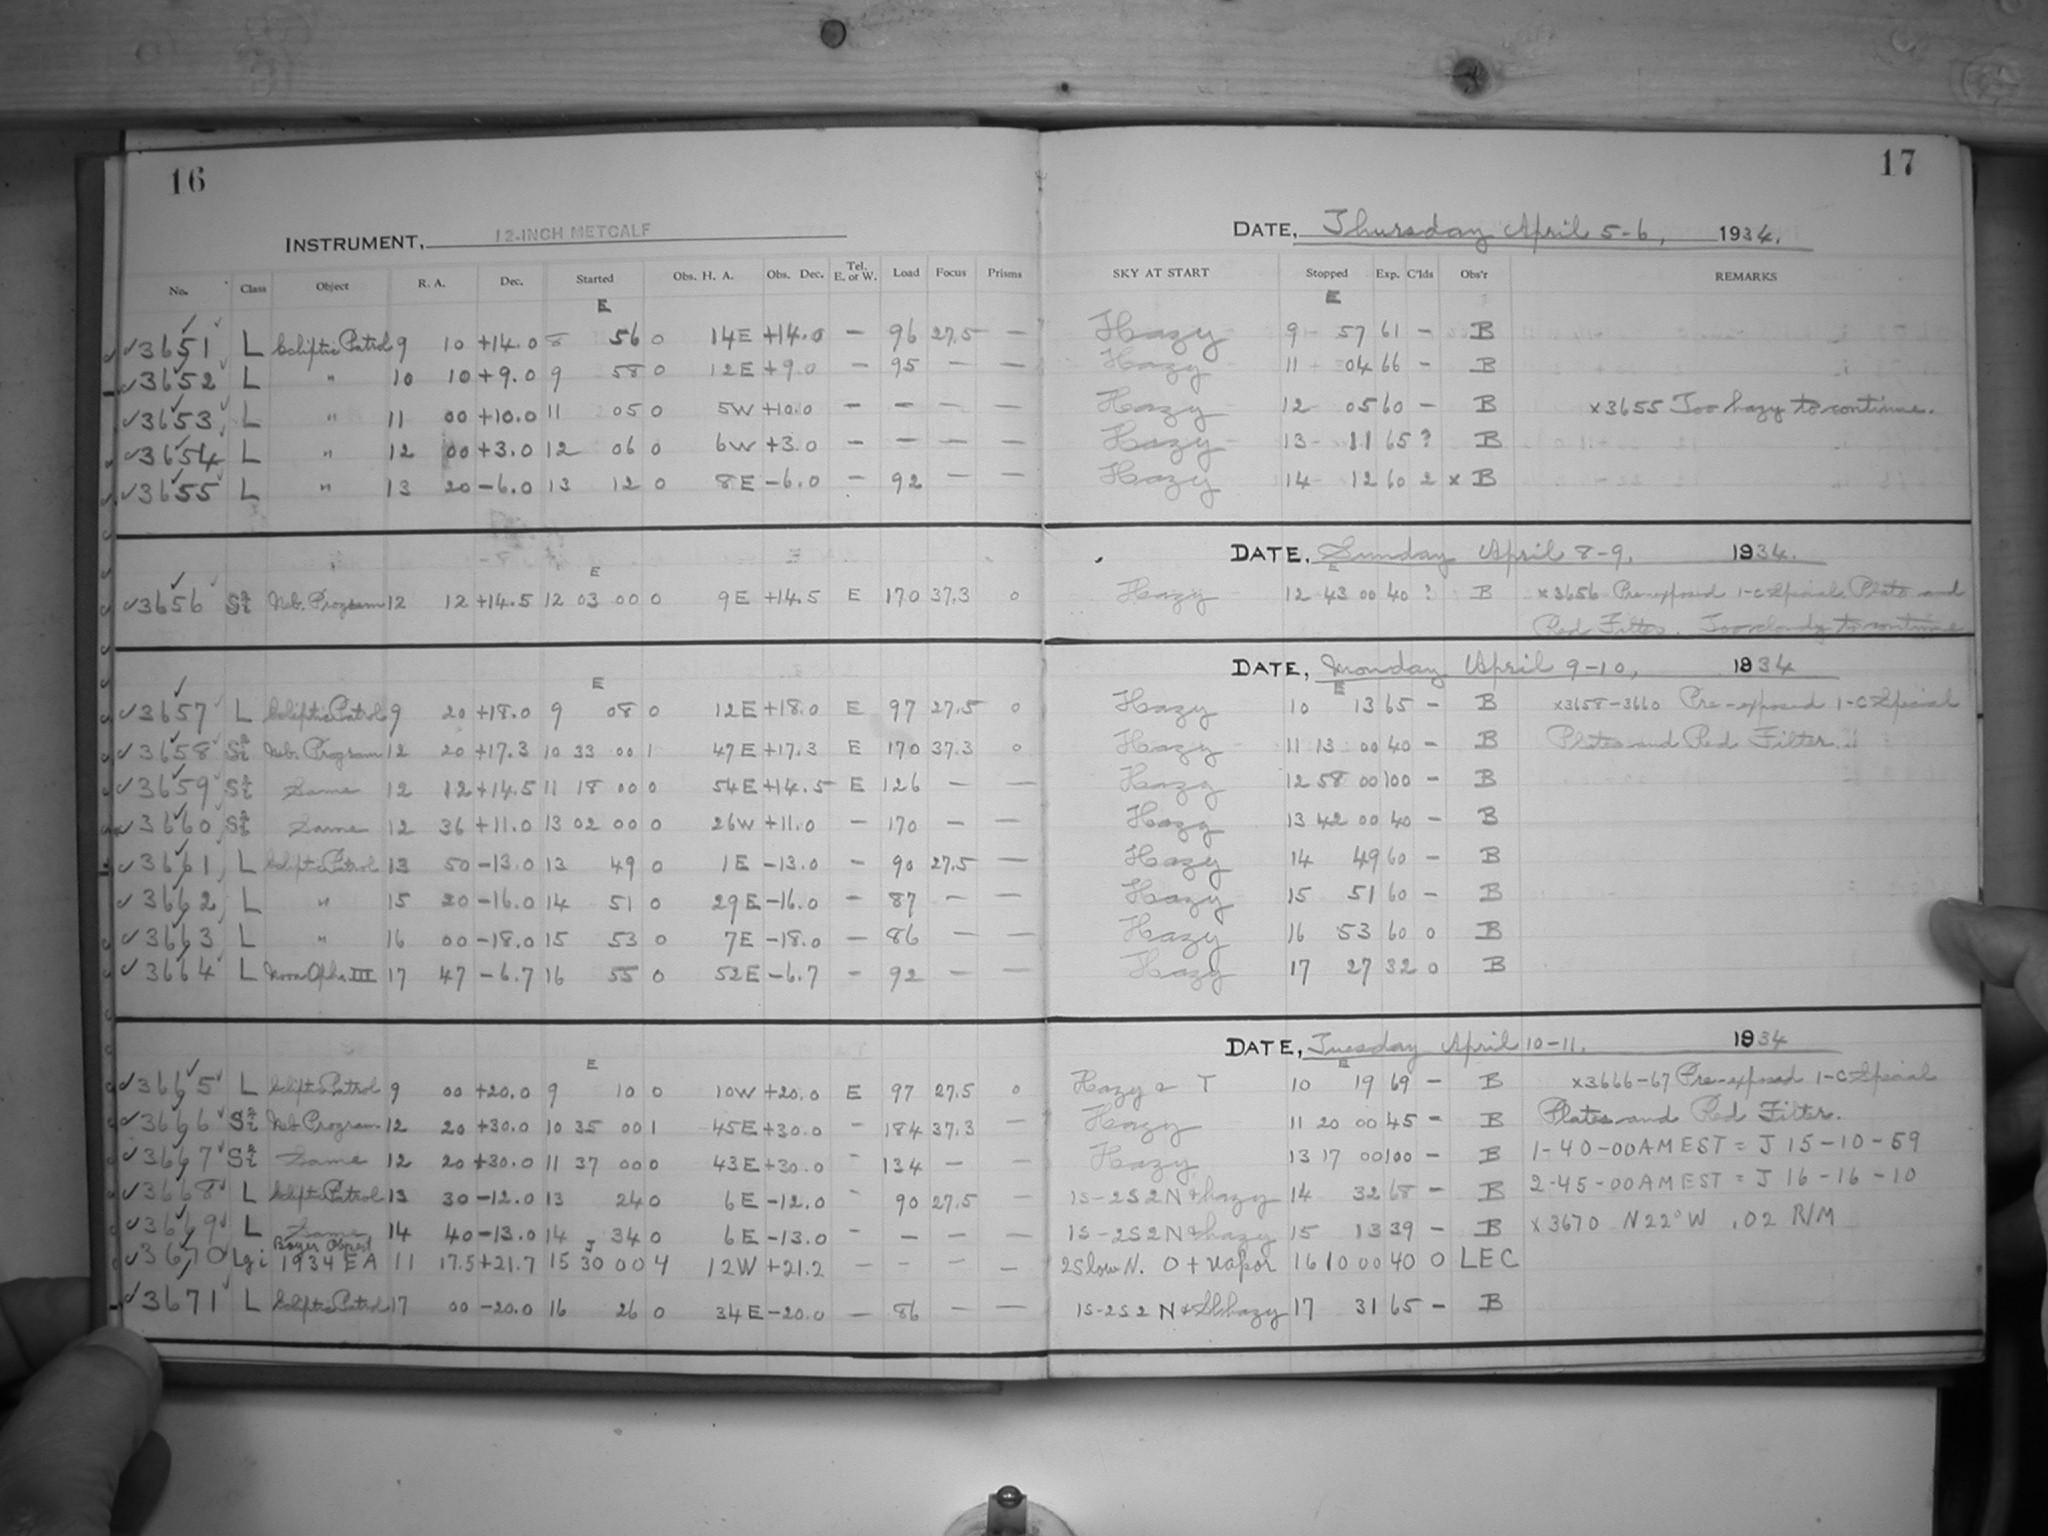 16
17
INSTRUMENT, 12-INCH METCALF
DATE, Thursday April 5-6, 1934.
No. Class Object R. A. Dec. Started Obs. H. A. Obs. Dec. Tel. E. or W. Load Focus Prisms SKY AT START Stopped Exp. C'lds Obs'r REMARKS
E E
3651 L Ecliptic Patrol 9 10 +14.0 8 56 0 14E +14.0 - 96 27.5 - Hazy 9 57 61 - B
3652 L " 10 10 +9.0 9 58 0 12E +9.0 - 95 - - Hazy 11 04 66 - B
3653 L " 11 00 +10.0 11 05 0 5W +10.0 - - - - Hazy 12 05 60 - B x3655 Too hazy to continue.
3654 L " 12 00 +3.0 12 06 0 6W +3.0 - - - - Hazy 13 11 65 ? B
3655 L " 13 20 -6.0 13 12 0 8E -6.0 - 92 - - Hazy 14 12 60 2 x B
DATE, Sunday April 8-9, 1934.
E E
3656 Neb. Program 12 12 +14.5 12 03 00 0 9E +14.5 E 170 37.3 0 Hazy 12 43 00 40 ? B x3656 Pre-exposed 1-C Special Plate and
Red Filter. Too cloudy to continue
DATE, Monday April 9-10, 1934
E E
3657 L Ecliptic Patrol 9 20 +18.0 9 08 0 12E +18.0 E 97 27.5 0 Hazy 10 13 65 - B x3658-3660 Pre-exposed 1-C Special
3658 Neb. Program 12 20 +17.3 10 33 00 1 47E +17.3 E 170 37.3 0 Hazy 11 13 00 40 - B Plates and Red Filter.
3659 Same 12 12 +14.5 11 18 00 0 54E +14.5 E 126 - - Hazy 12 58 00 100 - B
3660 Same 12 36 +11.0 13 02 00 0 26W +11.0 - 170 - - Hazy 13 42 00 40 - B
3661 L Eclipt. Patrol 13 50 -13.0 13 49 0 1E -13.0 - 90 27.5 - Hazy 14 49 60 - B
3662 L " 15 20 -16.0 14 51 0 29E -16.0 - 87 - - Hazy 15 51 60 - B
3663 L " 16 00 -18.0 15 53 0 7E -18.0 - 86 - - Hazy 16 53 60 0 B
3664 L III 17 47 -6.7 16 55 0 52E -6.7 - 92 - - Hazy 17 27 32 0 B
DATE, Tuesday April 10-11, 1934
E E
3665 L Eclipt. Patrol 9 00 +20.0 9 10 0 10W +20.0 E 97 27.5 0 Hazy & T 10 19 69 - B x3666-67 Pre-exposed 1-C Special
3666 Neb Program 12 20 +30.0 10 35 00 1 45E +30.0 - 184 37.3 - Hazy 11 20 00 45 - B Plates and Red Filter.
3667 Same 12 20 +30.0 11 37 00 0 43E +30.0 - 134 - - Hazy 13 17 00 100 - B 1-40-00 AM EST = J 15-10-59
3668 L Eclipt. Patrol 13 30 -12.0 13 24 0 6E -12.0 - 90 27.5 - 1S-2S 2N & hazy 14 32 68 - B 2-45-00 AM EST = J 16-16-10
3669 L Same 14 40 -13.0 14 34 0 6E -13.0 - - - - 1S-2S 2N & hazy 15 13 39 - B x3670 N22°W .02 R/M
Boyer Object J
3670 Lgi 1934 EA 11 17.5 +21.7 15 30 00 4 12W +21.2 - - - - 2S low N. O + vapor 16 10 00 40 0 LEC
3671 L Ecliptic Patrol 17 00 -20.0 16 26 0 34E -20.0 - 86 - - 1S-2S 2N & Sl hazy 17 31 65 - B